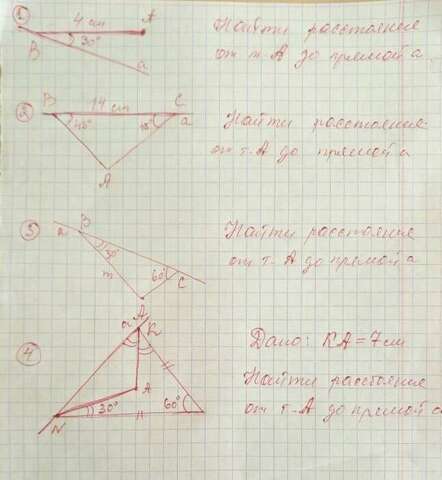 ① 4 см A Найти расстояние
B 30° a от т. A до прямой a.
② B 14 см C a Найти расстояние
45° 45° от т. A до прямой a
A
③ a B Найти расстояние
60° C от т. A до прямой a
m
A
④ a K Дано: KA = 7 см
A Найти расстояние
N 30° 60° от т. A до прямой a